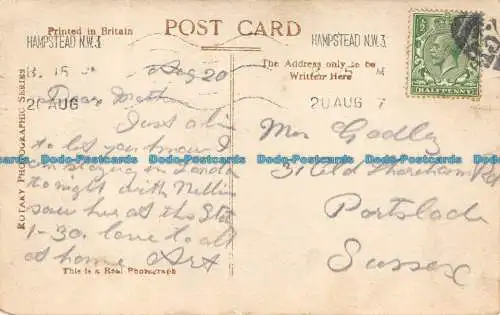 Printed in Britain
POST CARD
HAMPSTEAD N.W.3.
HAMPSTEAD N.W.3
The Address only to be
Written Here
HALFPENNY
20 AUG
20 AUG 7
ROTARY PHOTOGRAPHIC SERIES
Aug 20
Dear Moth
Just a line
to let you know I
am staying in London
tonight with Nellie
saw her at the Sta
1-30. love to all
at home Art
Mrs Godley
31 Old Shoreham Rd
Portslade
Sussex
This is a Real Photograph
bc-Postcards
bc-Postcards
bc-Postcards
bc-Postcards